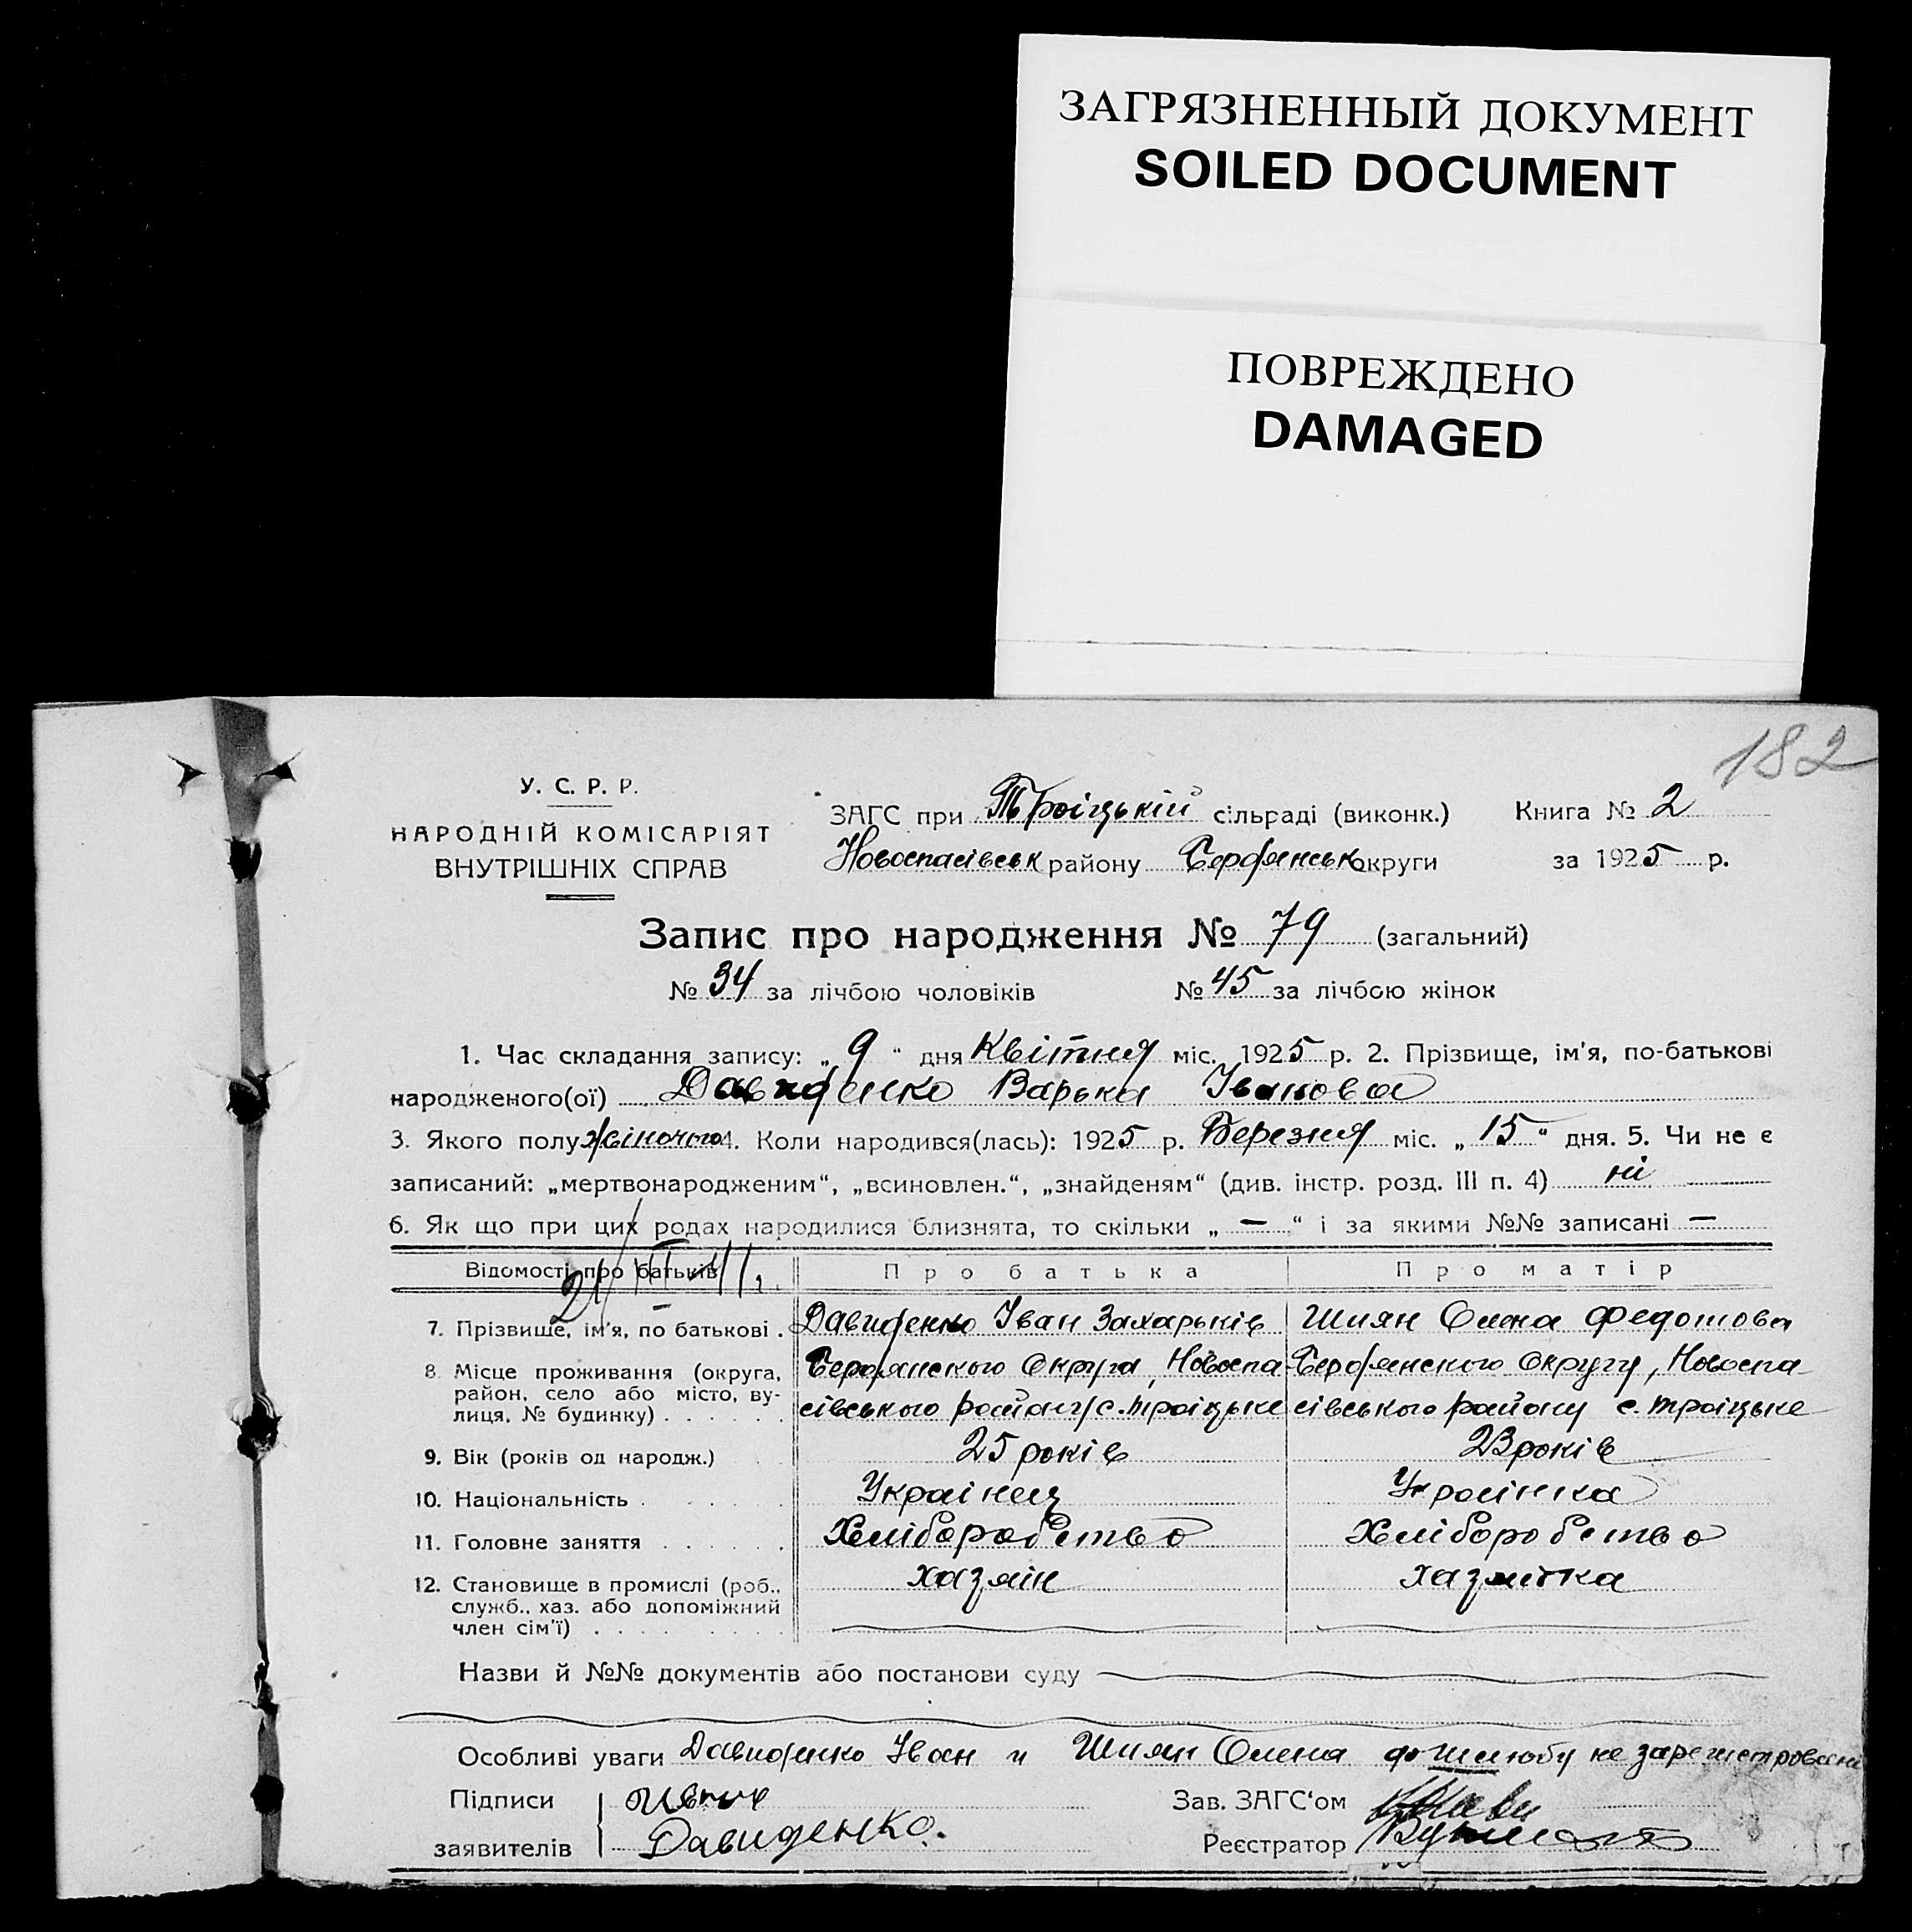 ЗАГРЯЗНЕННЫЙ ДОКУМЕНТ
SOILED DOCUMENT
ПОВРЕЖДЕНО
DAMAGED
182
У. С. Р. Р.
НАРОДНІЙ КОМІСАРІЯТ
ВНУТРІШНІХ СПРАВ
ЗАГС при Троіцькій сільраді (виконк.) Книга № 2
Новоспасівськ району Бердянськ округи за 1925 р.
Запис про народження № 79 (загальний)
№ 34 за лічбою чоловіків № 45 за лічбою жінок
1. Час складання запису: „ 9 “ дня Квітня міс. 1925 р. 2. Прізвище, ім'я, по-батькові
народженого(ої) Давиденко Варька Іванова
3. Якого полу жіночого 4. Коли народився(лась): 1925 р. Березня міс. „ 15 “ дня. 5. Чи не є
записаний: „мертвонародженим“, „всиновлен.“, „знайденям“ (див. інстр. розд. III п. 4) ні
6. Як що при цих родах народилися близнята, то скільки „ — “ і за якими №№ записані —
Відомості про батьків Про батька Про матір
7. Прізвище, ім'я, по батькові . Давиденко Іван Захарьків Шиян Олена Федотова
8. Місце проживання (округа, Бердянского Округа, Новоспа- Бердянского Округу, Новоспа-
район, село або місто, ву-
лиця, № будинку) . . . . . . сівського району с. Троіцьке сівського району с. Троіцьке
9. Вік (років од народж.) 25 років 23 років
10. Національність . Украінец Украінка
11. Головне заняття . . . . . . Хліборобство Хліборобство
12. Становище в промислі (роб., хазяін хазяйка
служб., хаз. або допоміжний
член сім'ї) . . . .
Назви й №№ документів або постанови суду
Особливі уваги Давиденко Іван и Шиян Олена до шлюбу не зарегистровани
Підписи Зав. ЗАГС'ом
заявителів Давиденко. Реєстратор